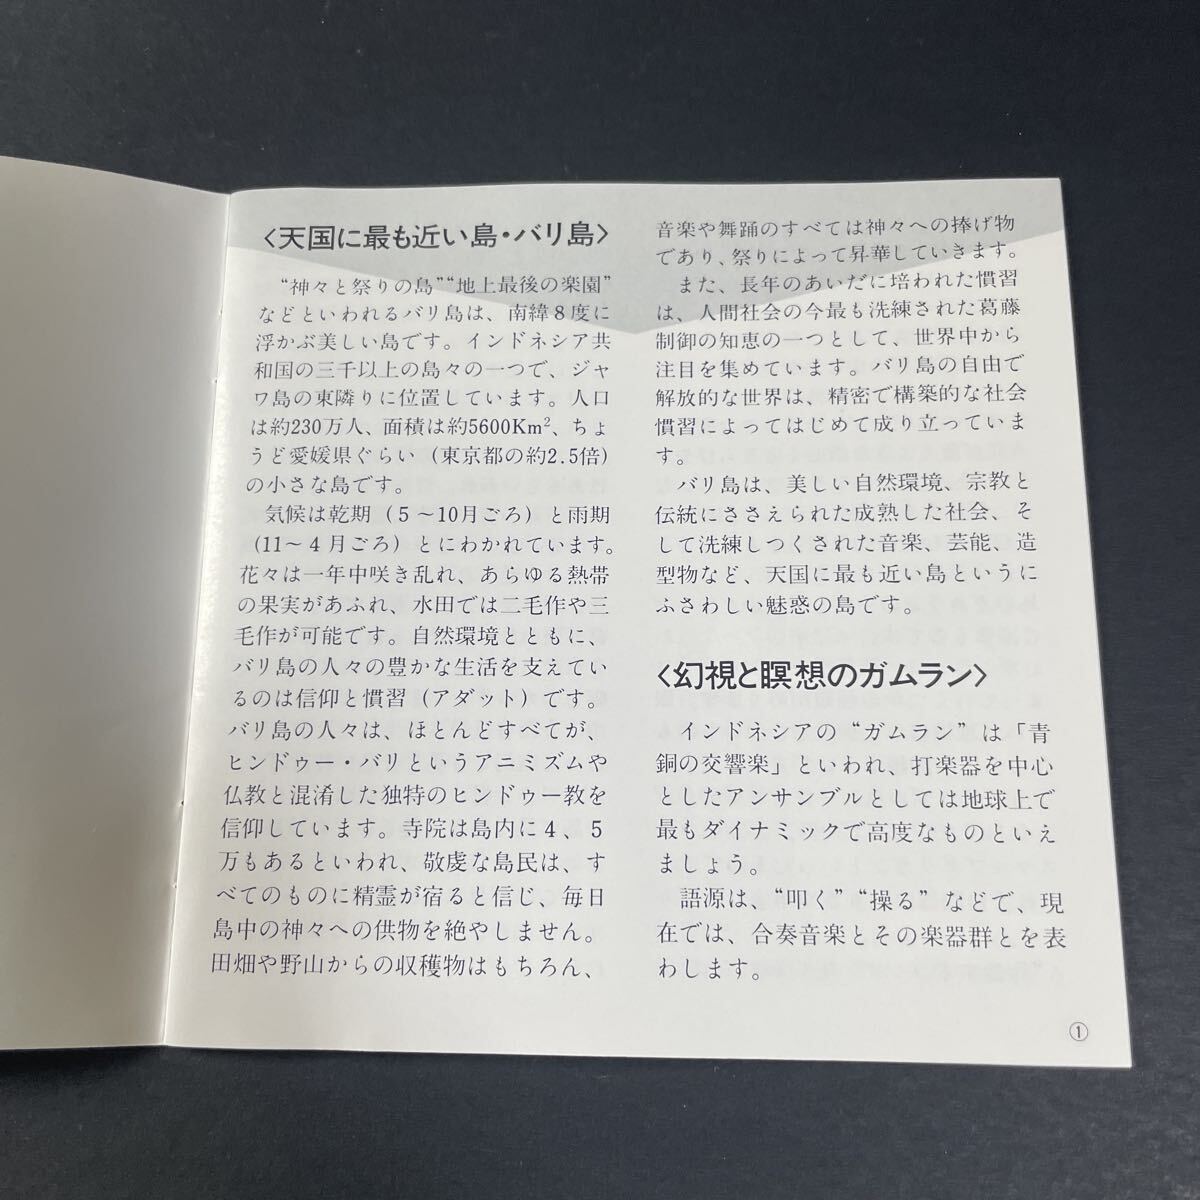 〈天国に最も近い島・バリ島〉
“神々と祭りの島”“地上最後の楽園”
などといわれるバリ島は、南緯8度に
浮かぶ美しい島です。インドネシア共
和国の三千以上の島々の一つで、ジャ
ワ島の東隣りに位置しています。人口
は約230万人、面積は約5600Km²、ちょ
うど愛媛県ぐらい（東京都の約2.5倍）
の小さな島です。
気候は乾期（5～10月ごろ）と雨期
（11～4月ごろ）とにわかれています。
花々は一年中咲き乱れ、あらゆる熱帯
の果実があふれ、水田では二毛作や三
毛作が可能です。自然環境とともに、
バリ島の人々の豊かな生活を支えてい
るのは信仰と慣習（アダット）です。
バリ島の人々は、ほとんどすべてが、
ヒンドゥー・バリというアニミズムや
仏教と混淆した独特のヒンドゥー教を
信仰しています。寺院は島内に4、5
万もあるといわれ、敬虔な島民は、す
べてのものに精霊が宿ると信じ、毎日
島中の神々への供物を絶やしません。
田畑や野山からの収穫物はもちろん、
音楽や舞踊のすべては神々への捧げ物
であり、祭りによって昇華していきます。
また、長年のあいだに培われた慣習
は、人間社会の今最も洗練された葛藤
制御の知恵の一つとして、世界中から
注目を集めています。バリ島の自由で
解放的な世界は、精密で構築的な社会
慣習によってはじめて成り立っていま
す。
バリ島は、美しい自然環境、宗教と
伝統にささえられた成熟した社会、そ
して洗練しつくされた音楽、芸能、造
型物など、天国に最も近い島というに
ふさわしい魅惑の島です。
〈幻視と瞑想のガムラン〉
インドネシアの“ガムラン”は「青
銅の交響楽」といわれ、打楽器を中心
としたアンサンブルとしては地球上で
最もダイナミックで高度なものといえ
ましょう。
語源は、“叩く”“操る”などで、現
在では、合奏音楽とその楽器群とを表
わします。
①